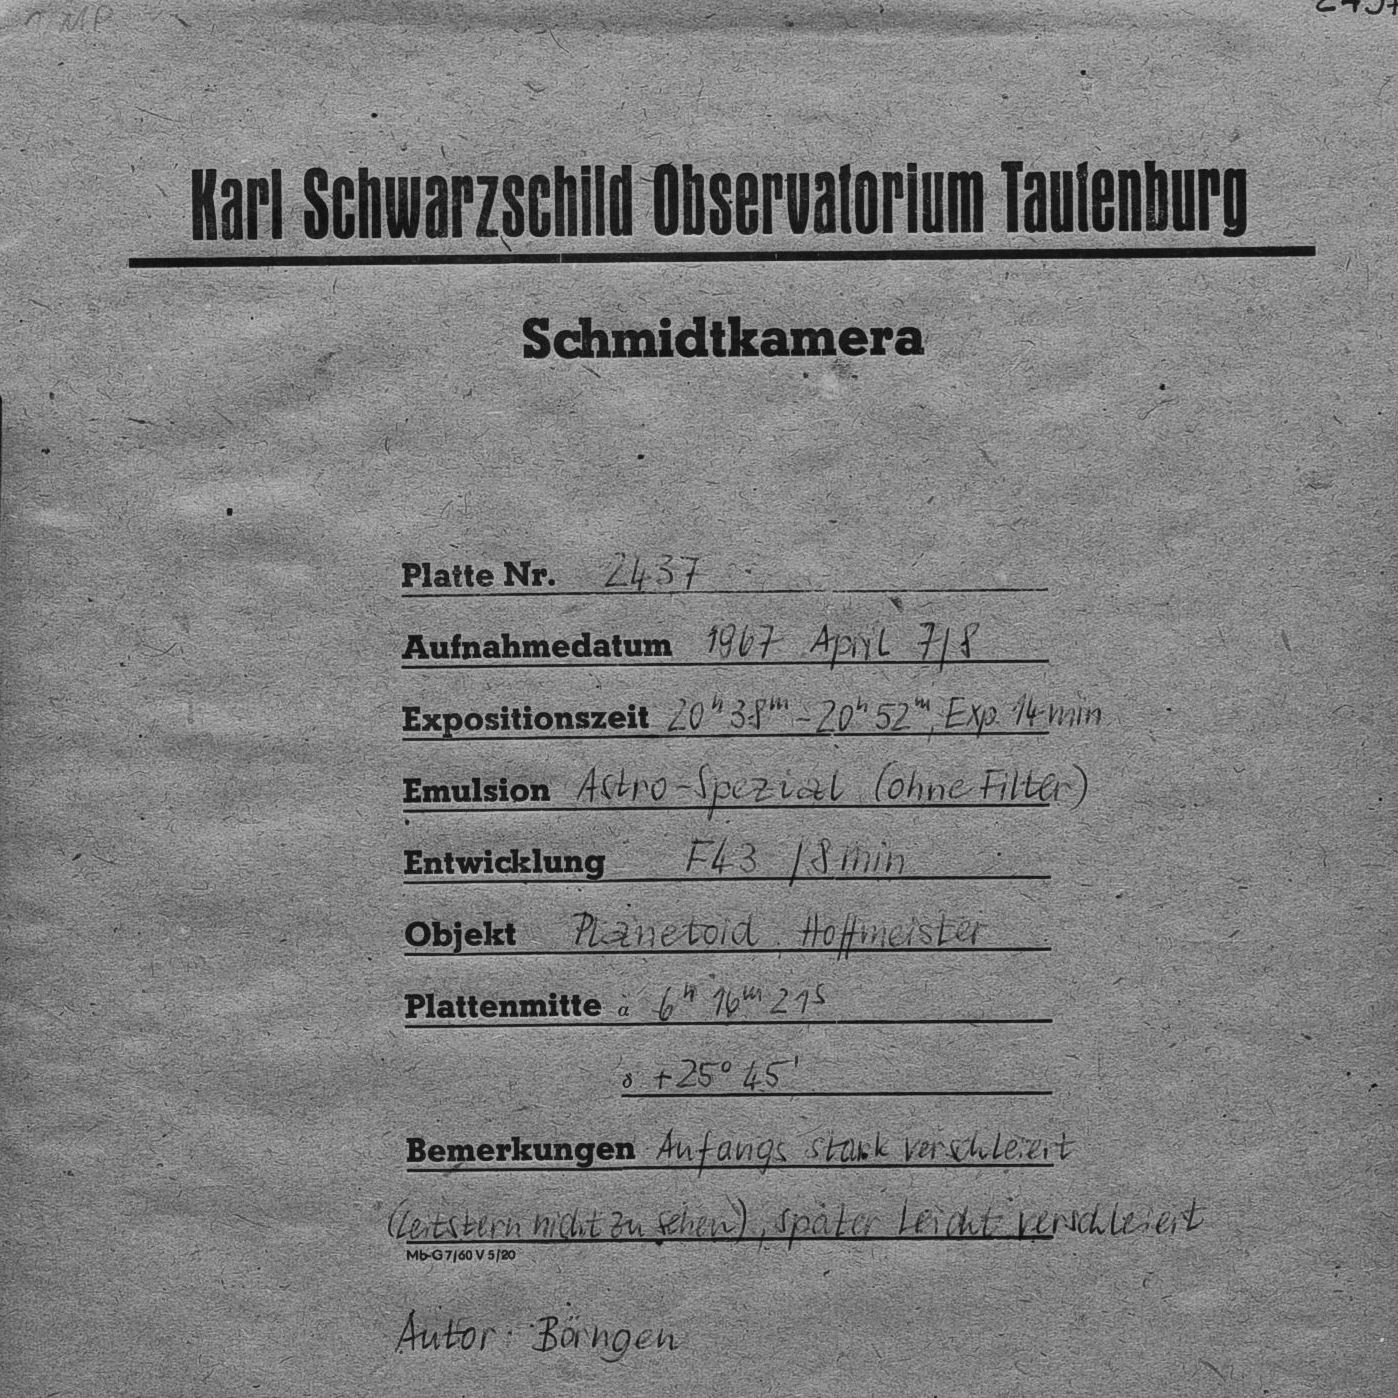 MP
2437
Karl Schwarzschild Observatorium Tautenburg
Schmidtkamera
Platte Nr. 2437
Aufnahmedatum 1967 April 7/8
Expositionszeit 20h 38m – 20h 52m, Exp. 14 min
Emulsion Astro-Spezial (ohne Filter)
Entwicklung F43 / 8 min
Objekt Planetoid Hoffmeister
Plattenmitte α 6h 16m 21s
δ +25° 45'
Bemerkungen Anfangs stark verschleiert
(Leitstern nicht zu sehen), später leicht verschleiert
Mb-G 7/60 V 5/20
Autor: Börngen